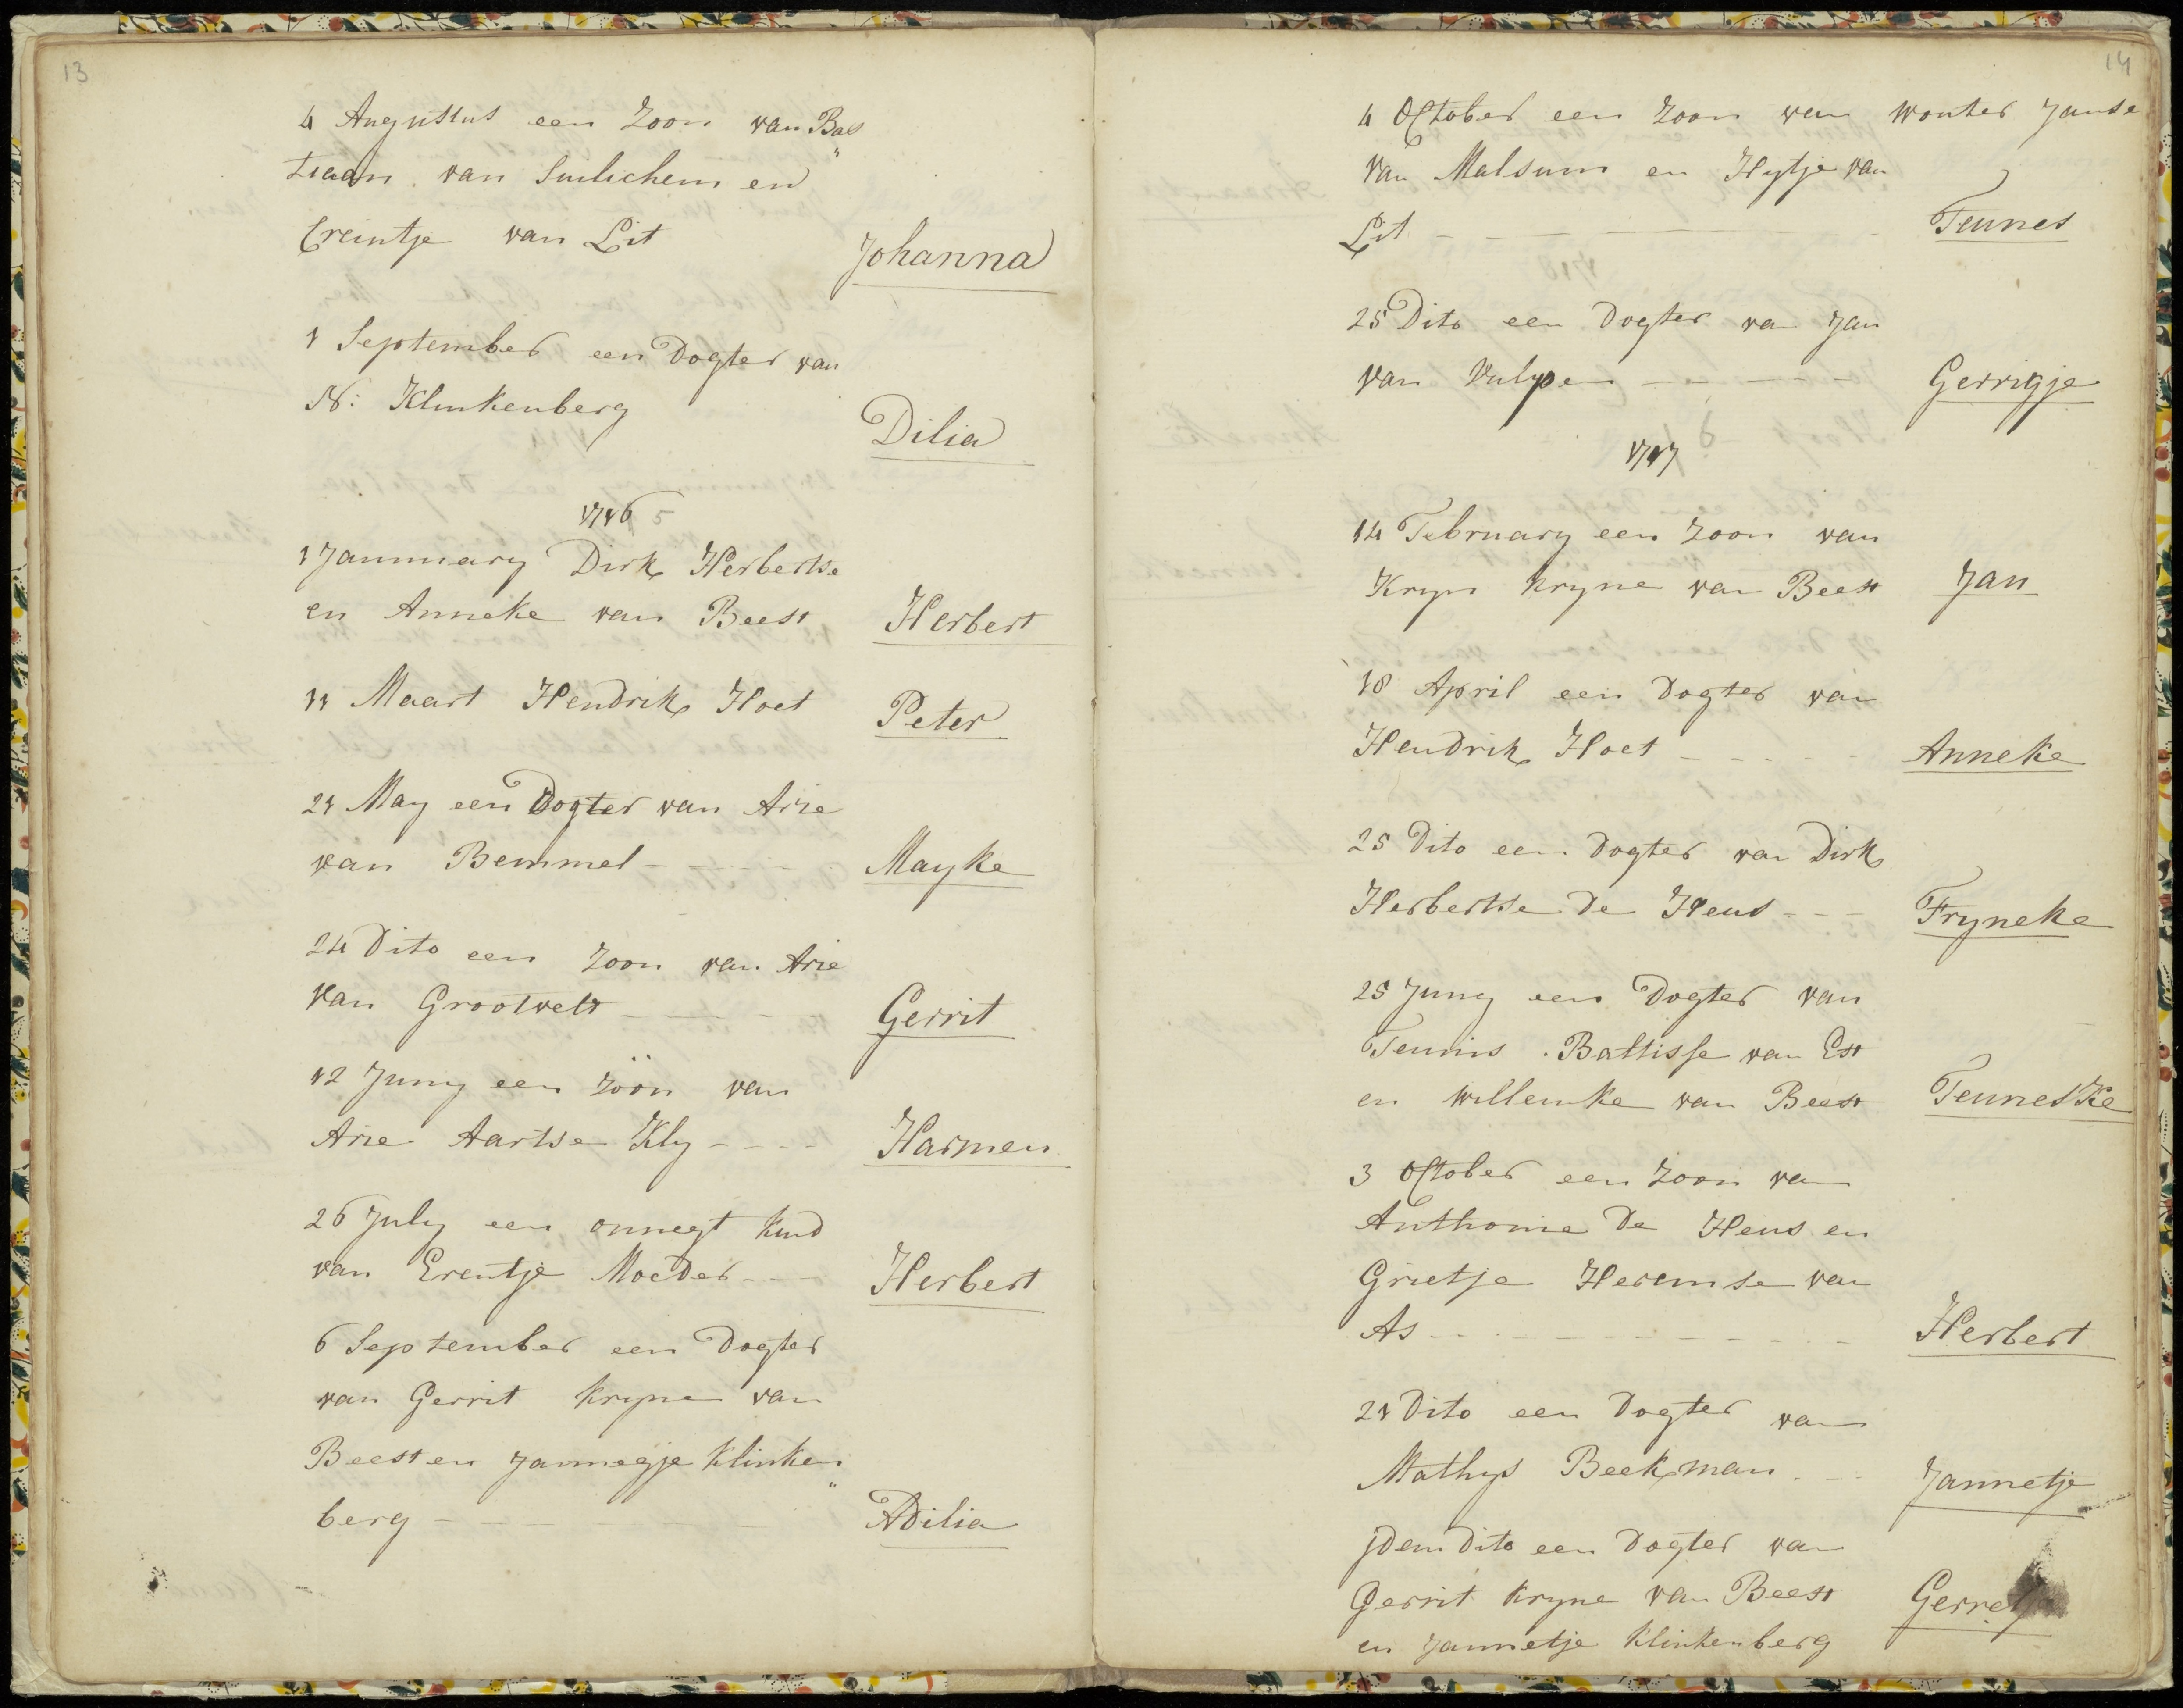 13
4 Augustus een Zoon van Bas„
tiaan van Suilichem en
Creintje van Lit
Johanna
1 September een Dogter van
N: Klinkenberg
Dilia
1716 5
1 Jannuary Dirk Herbertse
en Anneke van Beest
Herbert
11 Maart Hendrik Hoet
Peter
21 May een Dogter van Arie
van Bemmel
Mayke
24 Dito een Zoon van Arie
van Grootvelt
Gerrit
12 Juny een Zoon van
Arie Aartse Kly
Harmen
26 July een onnegt kind
van Erentje Moeder
Herbert
6 September een Dogter
van Gerrit Kryne van
Beest en Jannegje Klinken„
berg
Adilia
14
4 October een Zoon van Wouter Janse
van Malsum en Hytje van
Lit
Teunes
25 Dito een Dogter van Jan
van Vulpen
Gerrigje
1717
14 February een Zoon van
Kryn Kryne van Beest
Jan
18 April een Dogter van
Hendrik Hoet
Anneke
25 Dito een Dogter van Dirk
Herbertse de Heus
Fryneke
25 Juny een Dogter van
Teunis Battisse van Est
en Willemke van Beest
Teuneske
3 October een Zoon van
Anthonie de Heus en
Grietje Heremse van
As
Herbert
21 Dito een Dogter van
Mathys Beekman
Jannetje
jdem dito een Dogter van
Gerrit Kryne van Beest
en Jannetje Klinkenberg
Gerretje